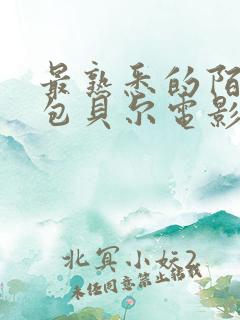 最熟悉的陌
包贝尔电影
北冥小妖2
未经同意禁止转载